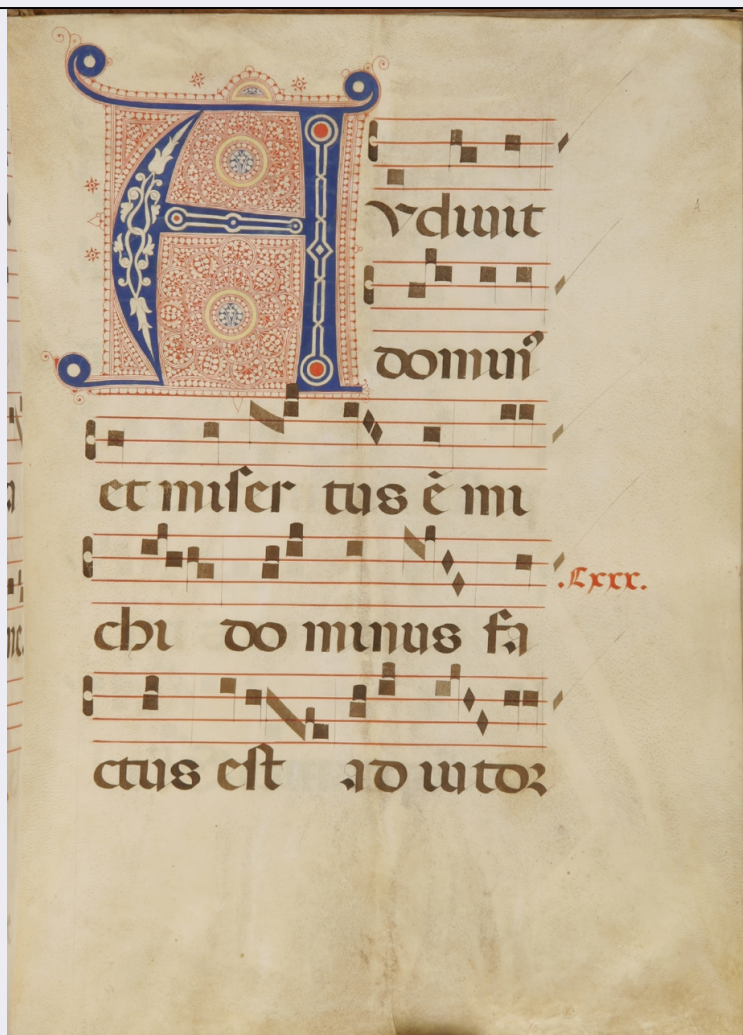 Audiuit
dominꝰ
et miser tus ē mi
chi do minus fa
.Lxxx.
ctus est ad iu tor